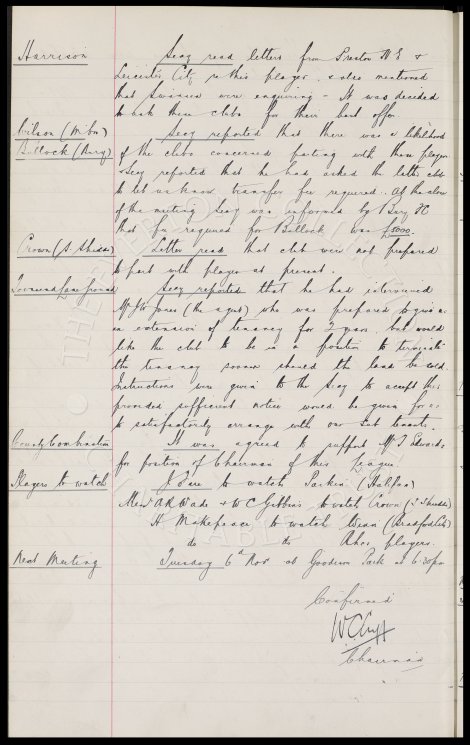 Harrison Secy read letters from Preston N.E &
Leicester City re this player, & also mentioned
that Swansea were enquiring - It was decided
to ask these clubs for their best offer
Wilson (M'bro) Secy reported that there was a likelihood
Bullock (Bury) of the clubs concerned parting with these players
& Secy reported that he had asked the latter club
to let us know transfer fee required. At the close
of the meeting Secy was informed by Bury FC
that fee required for Bullock was £5000.
Crown (S. Shields) Letter read that club were not prepared
to part with player at present.
Lane Ground Secy reported that he had interviewed
Mr Jones (the agent) who was prepared to give
an extension of tenancy for 2 years but would
like the club to be in a position to terminate
the tenancy sooner should the land be sold.
Instructions were given to the Secy to accept this
provided sufficient notice would be given for us
to satisfactorily arrange with our sub tenants.
County Combination It was agreed to support Mr T Edwards
for position of Chairman of this League.
Players to watch J Sare to watch Parkin (Halifax)
Messrs A R Wade & W C Gibbins to watch Crown (S Shields)
H Makepeace to watch (Bradford)
do do players.
Next Meeting Tuesday 6th Nov at Goodison Park at 6.30pm
Confirmed
W C Cuff
Chairman